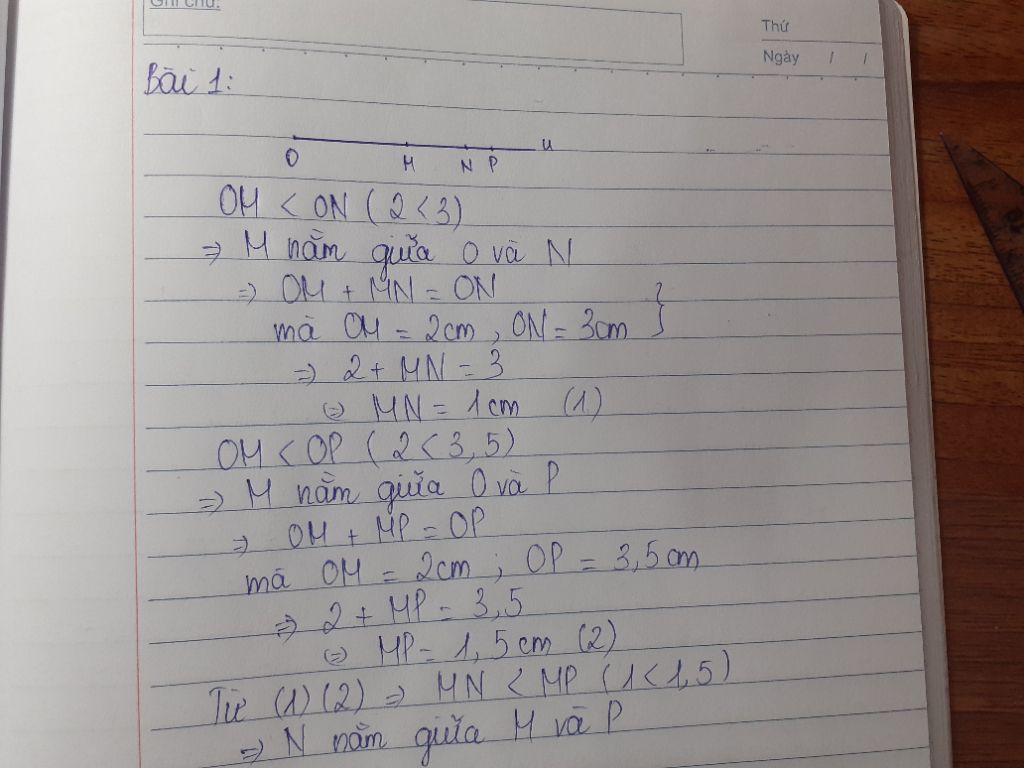 Ghi chú:
Thứ
Ngày / /
Bài 1:
O M N P u
OM < ON ( 2 < 3)
⇒ M nằm giữa O và N
⇒ OM + MN = ON
mà OM = 2cm , ON = 3cm }
⇒ 2 + MN = 3
⇔ MN = 1cm (1)
OM < OP ( 2 < 3,5)
⇒ M nằm giữa O và P
⇒ OM + MP = OP
mà OM = 2cm ; OP = 3,5cm
⇒ 2 + MP = 3,5
⇔ MP = 1,5cm (2)
Từ (1) (2) ⇒ MN < MP (1 < 1,5)
⇒ N nằm giữa M và P